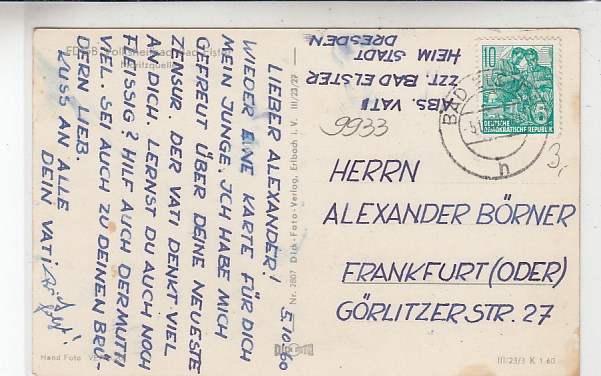 FDGB-Volksheilbad Bad Elster
Moritzquelle
5.10.60
LIEBER ALEXANDER!
WIEDER EINE KARTE FÜR DICH
MEIN JUNGE. ICH HABE MICH
GEFREUT ÜBER DEINE NEUESTE
ZENSUR. DER VATI DENKT VIEL
AN DICH. LERNST DU AUCH NOCH
FLEISSIG? HILF AUCH DER MUTTI
VIEL. SEI AUCH ZU DEINEN BRÜ-
DERN LIEB.
KUSS AN ALLE
DEIN VATI
Hand Foto
Nr. 2807 Dick-Foto-Verlag, Erlbach i. V. III/23/27
DICK FOTO
ABS. VATI
ZZT. BAD ELSTER
HEIM STADT
DRESDEN
10
5
DEUTSCHE
DEMOKRATISCHE REPUBLIK
BAD ELSTER
n
9933
3,-
HERRN
ALEXANDER BÖRNER
FRANKFURT (ODER)
GÖRLITZERSTR. 27
III/23/3 K 1 60